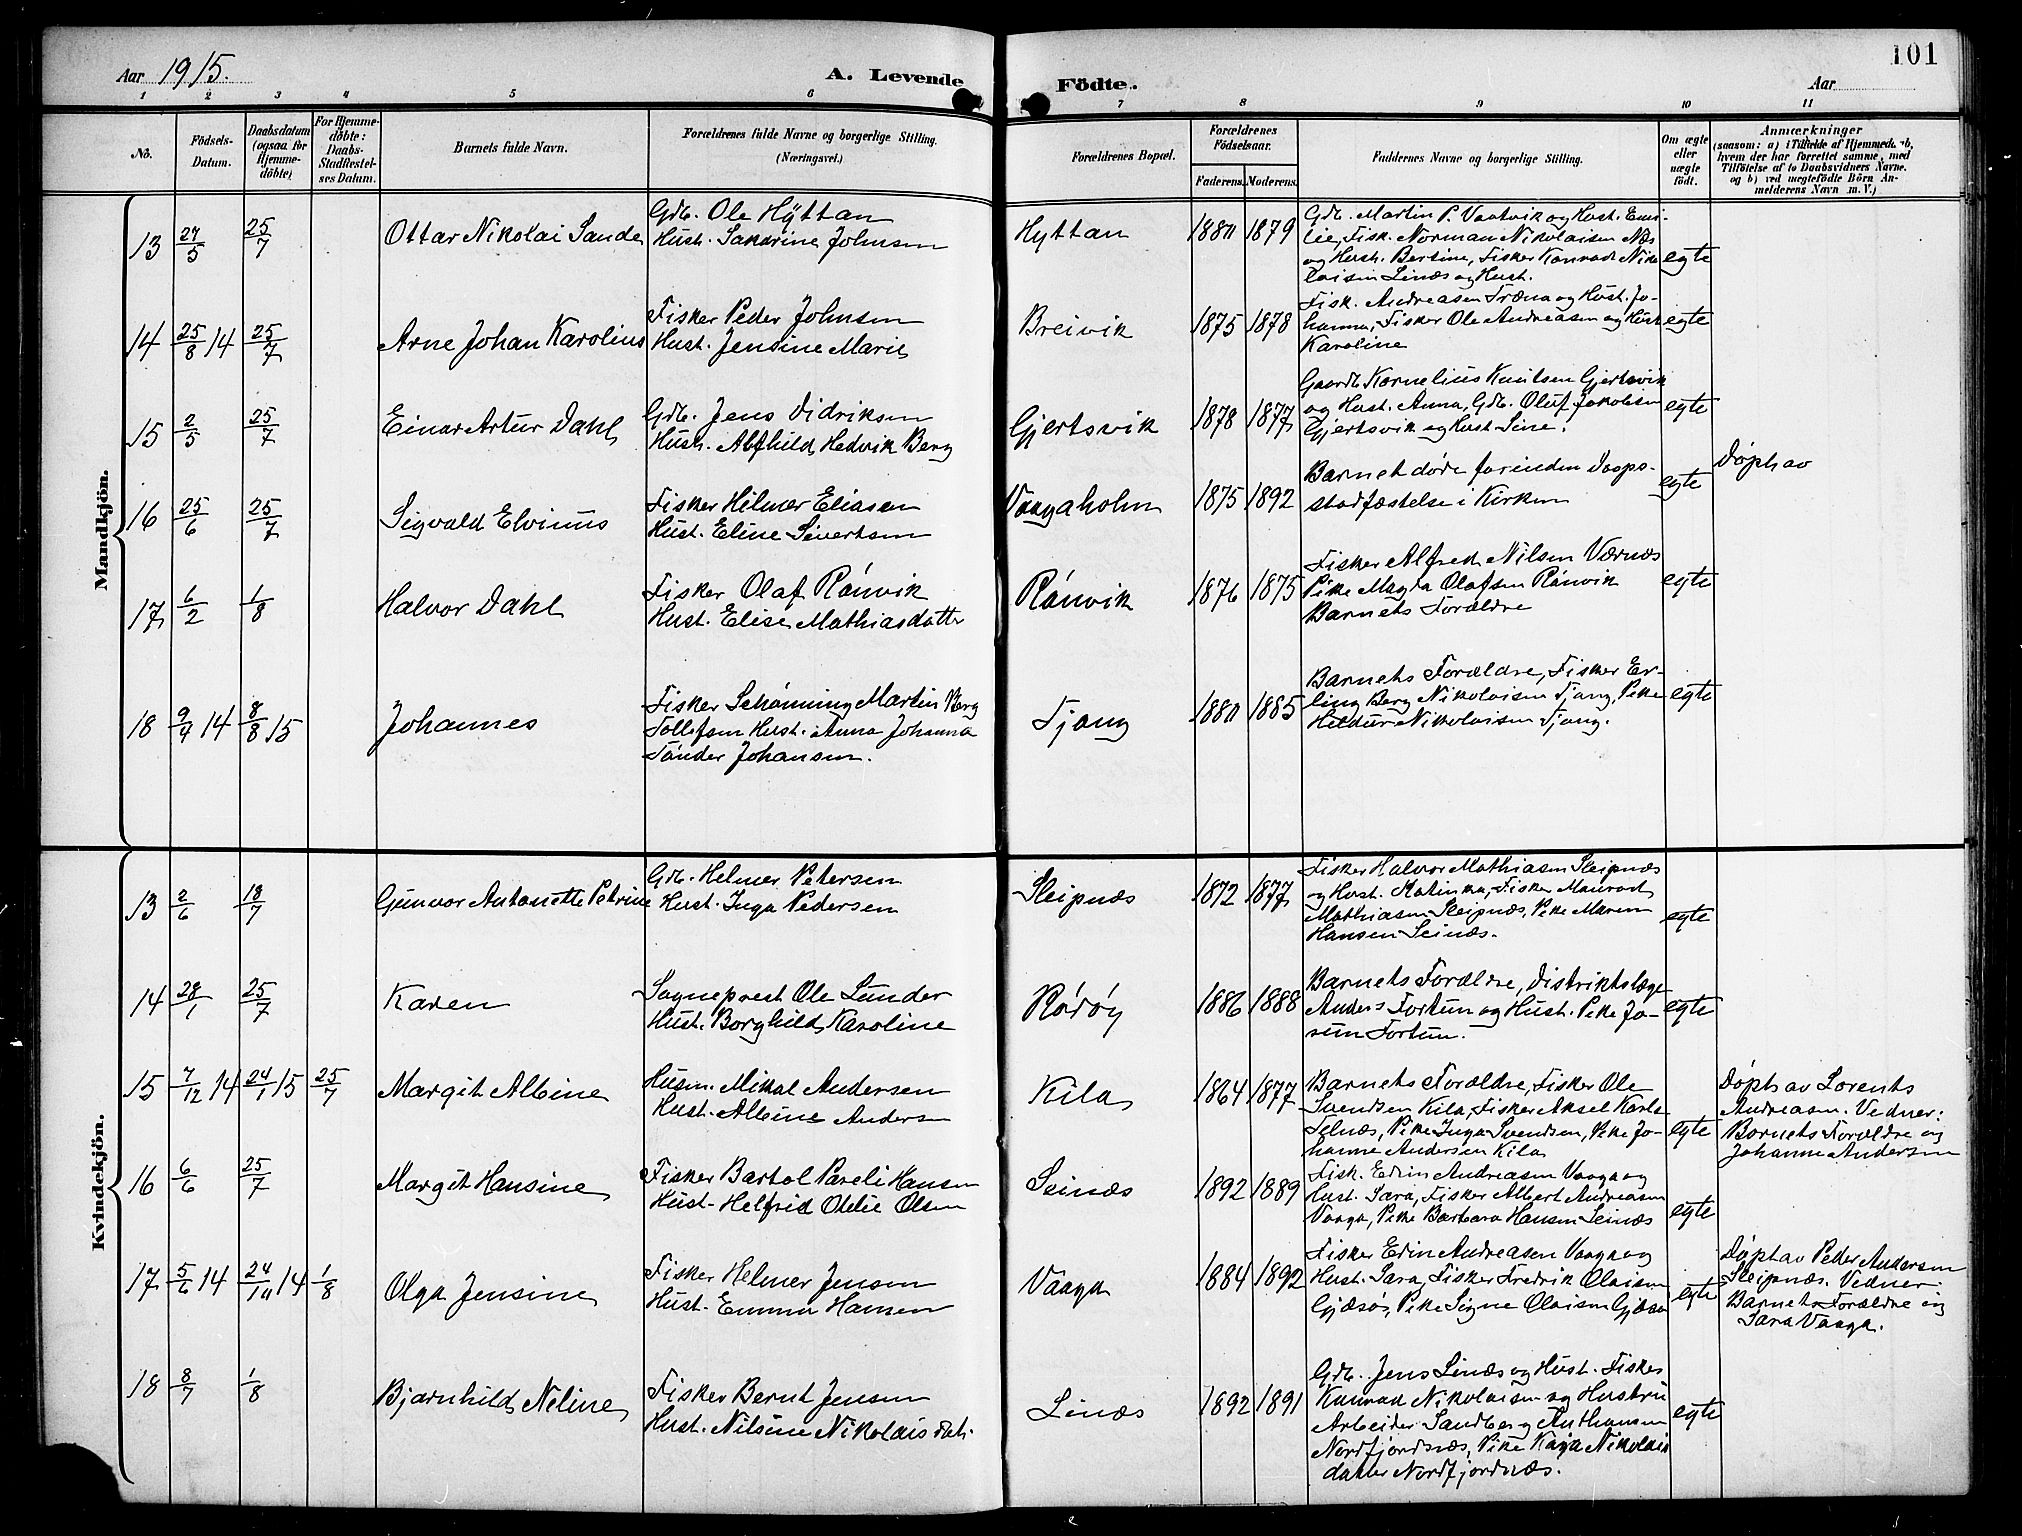 Aar 1915.
A. Levende
Födte.
Aar
101
1 2 3 4 5 6 7 8 9 10 11
No.
Födsels-
Datum.
Daabsdatum
(ogsaa for
Hjemme-
döbte)
For Hjemme-
döbte:
Daabs-
Stadfæstel-
ses Datum.
Barnets fulde Navn.
Forældrenes fulde Navne og borgerlige Stilling.
(Næringsvei.)
Forældrenes Bopæl.
Forældrenes
Födselsaar.
Faderens. Moderens.
Faddernes Navne og borgerlige Stilling.
Om ægte
eller
uægte
født.
Anmærkninger
(saasom: a) i Tilfælde af Hjemmedaab,
hvem der har forrettet samme, med
Tilföielse af to Daabsvidners Navne.
og b) ved uægtefödte Börn An-
melderens Navn m. V.)
Mandkjön.
13 27/5 25/7 Ottar Nikolai Sande
Gdb. Ole Hÿttan
Hust. Sakarine Johnsen
Hyttan 1880 1879
Gdb. Martin P. Vaatvik og Hust. Emi-
lie, Fisk. Norman Nikolaisen Næs
og Hust. Bersine, Fisker Konrad Niko
laisen Linæs og Hust.
egte
14 25/8 14 25/7 Arne Johan Karolius
Fisker Peder Johnsen
Hust. Jensine Marie
Breivik 1875 1878
Fisk. Andreasen Træna og Hust. Jo-
hanna, Fisker Ole Andreasen og Hust
Karoline
egte
15 2/5 25/7 Einar Artur Dahl
Gdb. Jens Didriksen
Hust. Alfhild Hedvik Berg
Gjertsvik 1878 1877
Gaardb. Kornelius Knutsen Gjertsvik
og Hust. Anna, Gdb. Oluf Jakobsen
Gjertsvik og Hust Sine.
egte
16 25/6 25/7 Sigvald Elvinus
Fisker Hilmer Eliasen
Hust. Eline Sivertsen
Vaagaholm 1875 1892
Barnet døde forinden Daaps-
stadfæstelse i Kirken
egte
Døpt av
17 6/2 1/8 Halvor Dahl
Fisker Olaf Rónvik
Hust. Elise Mathiasdatter
Rónvik 1876 1875
Fisker Alfred Nilsen Værnæs
Pike Magda Olafsen Rónvik
Barnets Forældre
egte
18 9/9 14 8/8 15 Johannes
Fisker Schønning Martin Berg
Tollefsen Hust. Anna Johanna
Tónder Johansen.
Tjong 1880 1885
Barnets Forældre, Fisker Er-
ling Berg Nikolaisen Tjong, Pike
Hildur Nikolaisen Tjong.
egte
Kvindekjön.
13 2/6 18/7 Gunvor Antonette Petrine
Gdb. Helmer Petersen
Hust. Inga Pedersen
Sleipnæs 1872 1877
Fisker Halvor Mathiasen Sleipnæs
og Hust. Katinka, Fisker Maurod
Mathiasen Sleipnæs, Pike Maren
Hansen Seinæs.
egte
14 28/1 25/7 Karen
Sogneprest Ole Lunder
Hust. Borghild Karoline
Ródóy 1886 1888
Barnets Forældre, Distriktslæge
Anders Fortun og Hust. Pike Jo-
sun Fortun.
egte
15 7/12 14 24/1 15 25/7 Margit Albine
Husm. Mikal Andersen
Hust. Albine Anders
Kila 1864 1877
Barnets Forældre, Fisker Ole
Svendsen Kila, Fisker Aksel Karls
Selnæs, Pike Inga Svendsen, Pike Jo-
hanne Andersen Kila
egte
Døpt av Lorents
Andreasen. Vedner:
Barnets Forældre og
Johanne Andersen
16 6/6 25/7 Margit Hansine
Fisker Bartol Pareli Hansen
Hust. Helfrid Otelie Olsen
Seinæs 1892 1889
Fisk. Edin Andreasen Vaaga og
Hust. Sara, Fisker Albert Andreasen
Vaaga, Pike Barbara Hansen Seinæs
egte
17 5/6 14 24/10 14 1/8 Olga Jensine
Fisker Helmer Jensen
Hust. Emma Hansen
Vaaga 1884 1892
Fisker Edin Andreasen Vaaga og
Hust. Sara, Fisker Fredrik Olaisen
Gjæsø, Pike Signe Olaisen Gjæsø
egte
Døpt av Peder Andersen
Sleipnæs. Vedner:
Barnets Forældre og
Sara Vaaga.
18 8/7 1/8 Bjarnhild Neline
Fisker Bernt Jensen
Hust. Nilsine Nikolaisdat.
Linæs 1892 1891
Gdb. Jens Linæs og Hust. Fisker
Konrad Nikolaisen og Hustru
Arbeider Sandberg Anthonsen
Nordfjordnæs, Pike Kaja Nikolais
datter Nordfjordnæs.
egte